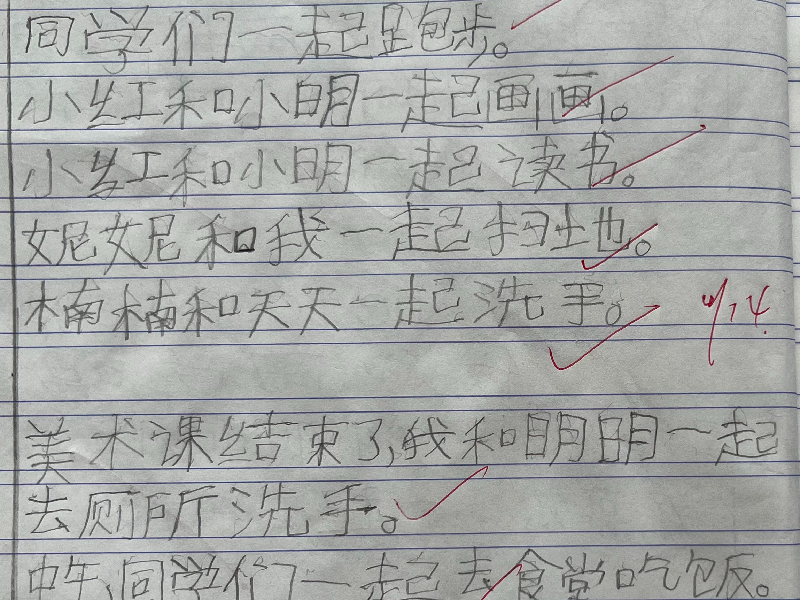 同学们一起跑步。
小红和小明一起画画。
小红和小明一起读书。
妮妮和我一起扫地。
楠楠和天天一起洗手。
9,14.
美术课结束了,我和明明一起
去厕所洗手。
中午、同学们一起去食堂吃饭。